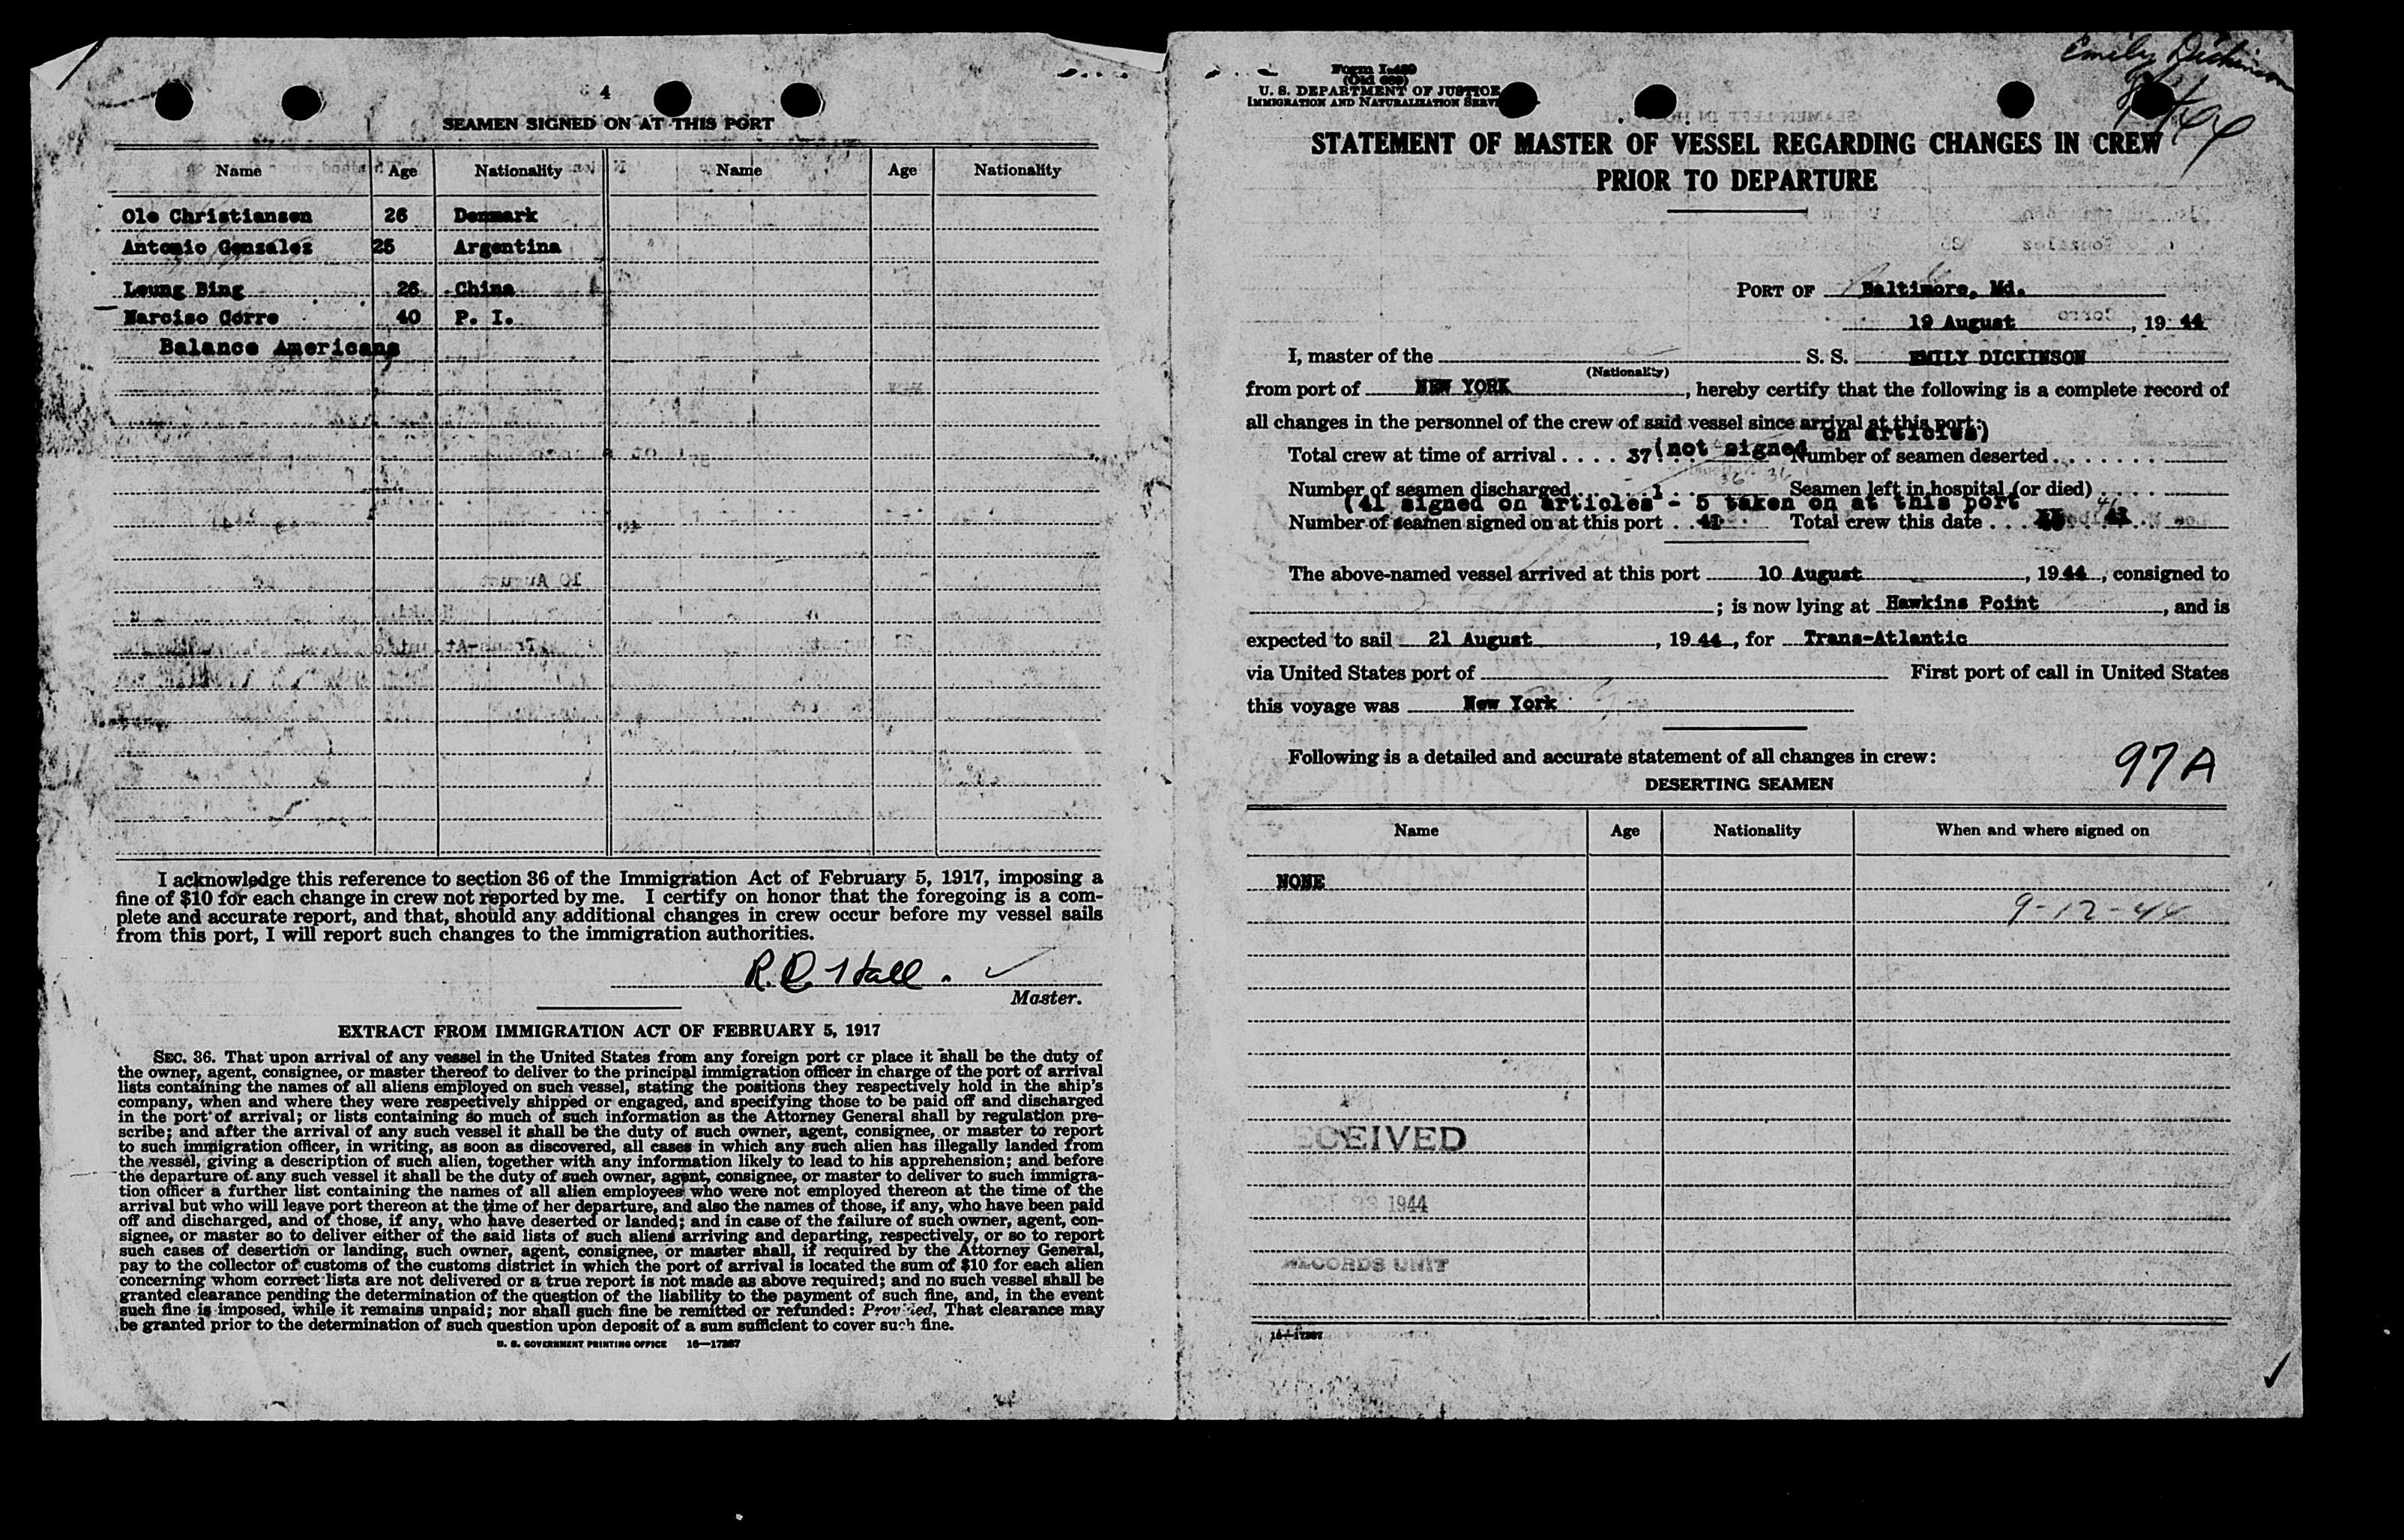 4
SEAMEN SIGNED ON AT THIS PORT
Name Age Nationality Name Age Nationality
Ole Christiansen 26 Denmark
Antonio Gonzales 25 Argentina
Leung Bing 26 China
Narciso Corro 40 P. I.
Balance Americans
I acknowledge this reference to section 36 of the Immigration Act of February 5, 1917, imposing a
fine of $10 for each change in crew not reported by me. I certify on honor that the foregoing is a com-
plete and accurate report, and that, should any additional changes in crew occur before my vessel sails
from this port, I will report such changes to the immigration authorities.
R. D. Hall.
Master.
EXTRACT FROM IMMIGRATION ACT OF FEBRUARY 5, 1917
SEC. 36. That upon arrival of any vessel in the United States from any foreign port or place it shall be the duty of
the owner, agent, consignee, or master thereof to deliver to the principal immigration officer in charge of the port of arrival
lists containing the names of all aliens employed on such vessel, stating the positions they respectively hold in the ship's
company, when and where they were respectively shipped or engaged, and specifying those to be paid off and discharged
in the port of arrival; or lists containing so much of such information as the Attorney General shall by regulation pre-
scribe; and after the arrival of any such vessel it shall be the duty of such owner, agent, consignee, or master to report
to such immigration officer, in writing, as soon as discovered, all cases in which any such alien has illegally landed from
the vessel, giving a description of such alien, together with any information likely to lead to his apprehension; and before
the departure of any such vessel it shall be the duty of such owner, agent, consignee, or master to deliver to such immigra-
tion officer a further list containing the names of all alien employees who were not employed thereon at the time of the
arrival but who will leave port thereon at the time of her departure, and also the names of those, if any, who have been paid
off and discharged, and of those, if any, who have deserted or landed; and in case of the failure of such owner, agent, con-
signee, or master so to deliver either of the said lists of such aliens arriving and departing, respectively, or so to report
such cases of desertion or landing, such owner, agent, consignee, or master shall, if required by the Attorney General,
pay to the collector of customs of the customs district in which the port of arrival is located the sum of $10 for each alien
concerning whom correct lists are not delivered or a true report is not made as above required; and no such vessel shall be
granted clearance pending the determination of the question of the liability to the payment of such fine, and, in the event
such fine is imposed, while it remains unpaid; nor shall such fine be remitted or refunded: Provided, That clearance may
be granted prior to the determination of such question upon deposit of a sum sufficient to cover such fine.
U. S. GOVERNMENT PRINTING OFFICE 16—17267
Emily Dickinson
Form I-489
(Old 689)
U. S. DEPARTMENT OF JUSTICE
IMMIGRATION AND NATURALIZATION SERVI
STATEMENT OF MASTER OF VESSEL REGARDING CHANGES IN CREW
PRIOR TO DEPARTURE
PORT OF Baltimore, Md.
19 August, 19 44
I, master of the S. S. EMILY DICKINSON
(Nationality)
from port of NEW YORK, hereby certify that the following is a complete record of
all changes in the personnel of the crew of said vessel since arrival at this port:
on articles)
Total crew at time of arrival . . . . 37 (not signed Number of seamen deserted . . . . . . .
Number of seamen discharged . . . . 1 . . Seamen left in hospital (or died) . . . .
(41 signed on articles - 5 taken on at this port
Number of seamen signed on at this port . . 41 . . Total crew this date . . . 41
The above-named vessel arrived at this port 10 August, 1944, consigned to
; is now lying at Hawkins Point, and is
expected to sail 21 August, 19 44, for Trans-Atlantic
via United States port of First port of call in United States
this voyage was New York
Following is a detailed and accurate statement of all changes in crew:
97A
DESERTING SEAMEN
Name Age Nationality When and where signed on
NONE
9-12-44
CEIVED
1944
RECORDS UNIT
16—17267